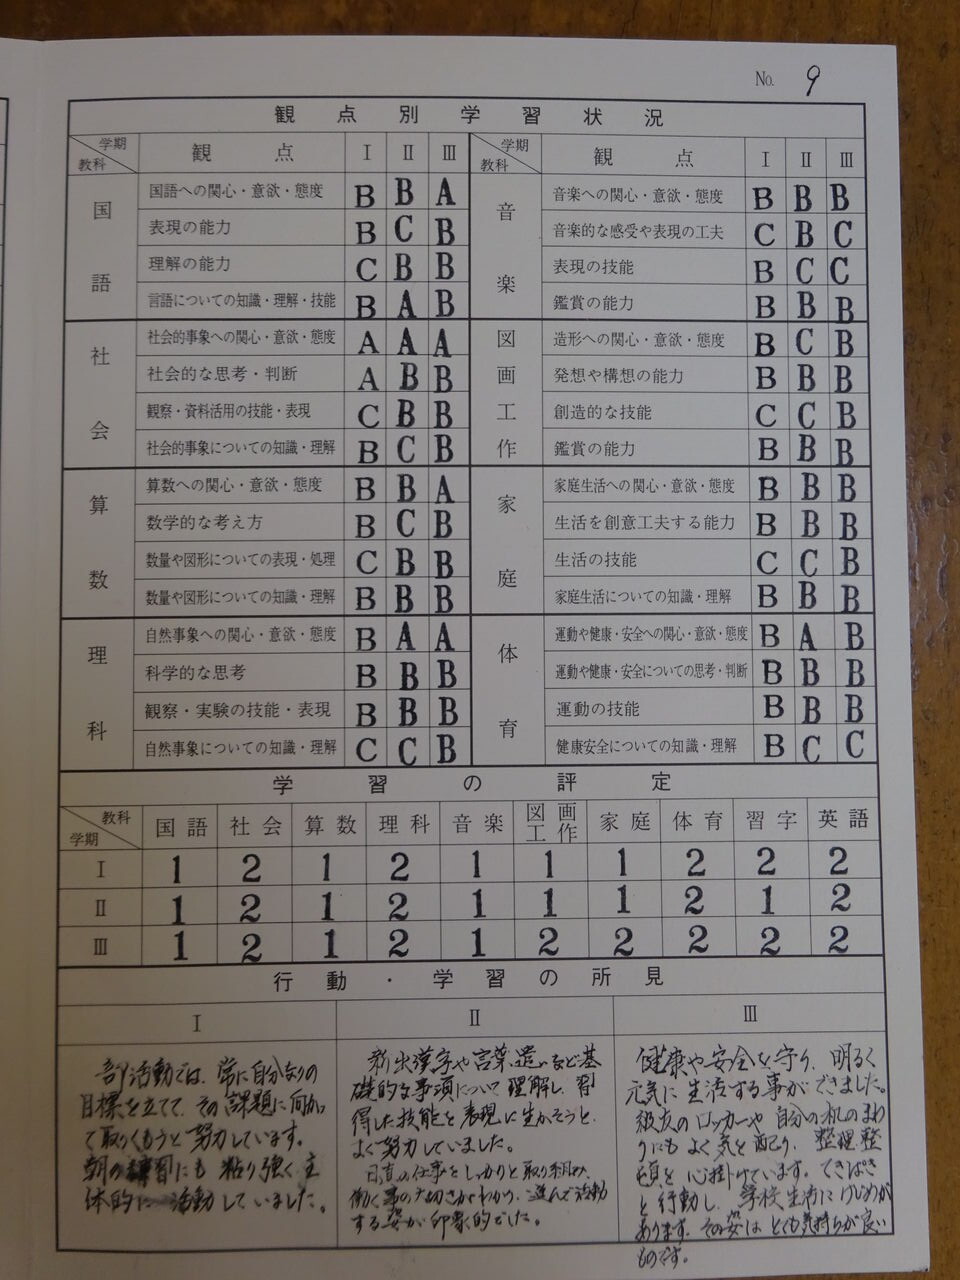 No. 9
観点別学習状況
学期 教科 観点 I II III
国語
国語への関心・意欲・態度 B B A
表現の能力 B C B
理解の能力 C B B
言語についての知識・理解・技能 B A B
社会
社会的事象への関心・意欲・態度 A A A
社会的な思考・判断 A B B
観察・資料活用の技能・表現 C B B
社会的事象についての知識・理解 B C B
算数
算数への関心・意欲・態度 B B A
数学的な考え方 B C B
数量や図形についての表現・処理 C B B
数量や図形についての知識・理解 B B B
理科
自然事象への関心・意欲・態度 B A A
科学的な思考 B B B
観察・実験の技能・表現 B B B
自然事象についての知識・理解 C C B
学期 教科 観点 I II III
音楽
音楽への関心・意欲・態度 B B B
音楽的な感受や表現の工夫 C B C
表現の技能 B C C
鑑賞の能力 B B B
図画工作
造形への関心・意欲・態度 B C B
発想や構想の能力 B B B
創造的な技能 C C B
鑑賞の能力 B B B
家庭
家庭生活への関心・意欲・態度 B B B
生活を創意工夫する能力 B B B
生活の技能 C C B
家庭生活についての知識・理解 B B B
体育
運動や健康・安全への関心・意欲・態度 B A B
運動や健康・安全についての思考・判断 B B B
運動の技能 B B B
健康安全についての知識・理解 B C C
学習の評定
教科 学期 国語 社会 算数 理科 音楽 図画工作 家庭 体育 習字 英語
I 1 2 1 2 1 1 1 2 2 2
II 1 2 1 2 1 1 1 2 1 2
III 1 2 1 2 1 2 2 2 2 2
行動・学習の所見
I
部活動では、常に自分なりの
目標を立てて、その課題に向かっ
て取りくもうと努力しています。
朝の練習にも粘り強く主
体的に活動していました。
II
新出漢字や言葉遣いなど基
礎的な事項について理解し、習
得した技能を表現に生かそうと、
よく努力していました。
日直の仕事をしっかりと取り組み、
働く事の大切さがわかり、進んで活動
する姿が印象的でした。
III
健康や安全を守り、明るく
元気に生活する事ができました。
級友のロッカーや自分の机のまわ
りにもよく気を配り、整理整
頓を心掛けています。てきぱき
と行動し、学校生活にけじめが
あります。その姿はとても気持ちが良い
ものです。